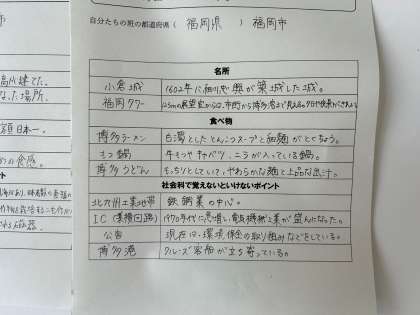 自分たちの班の都道府県（ 福岡県 ）福岡市
高い建てた。
なった場所。
日本一。
の食感。
名所
小倉城 1602年に細川忠興が築城した城。
福岡タワー 123mの展望室からは、市街から博多湾まで見える。夕日や夜景がきれい
食べ物
博多ラーメン 白濁としたとんこつスープと細麺がとくちょう。
もつ鍋 牛もつやキャベツ、ニラが入っている鍋。
博多うどん もっちりとしていて、やわらかな麺と上品な出汁。
社会科で覚えないといけないポイント
北九州工業地帯 鉄鋼業の中心。
IC（集積回路） 1970年代に急増し、電気機械工業が盛んになった。
公害 現在は、環境保全の取り組みなどをしている。
博多港 クルーズ客船が立ち寄っている。